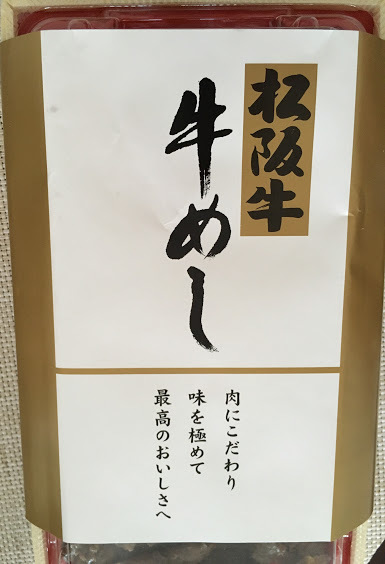 松阪牛
牛めし
肉にこだわり
味を極めて
最高のおいしさへ